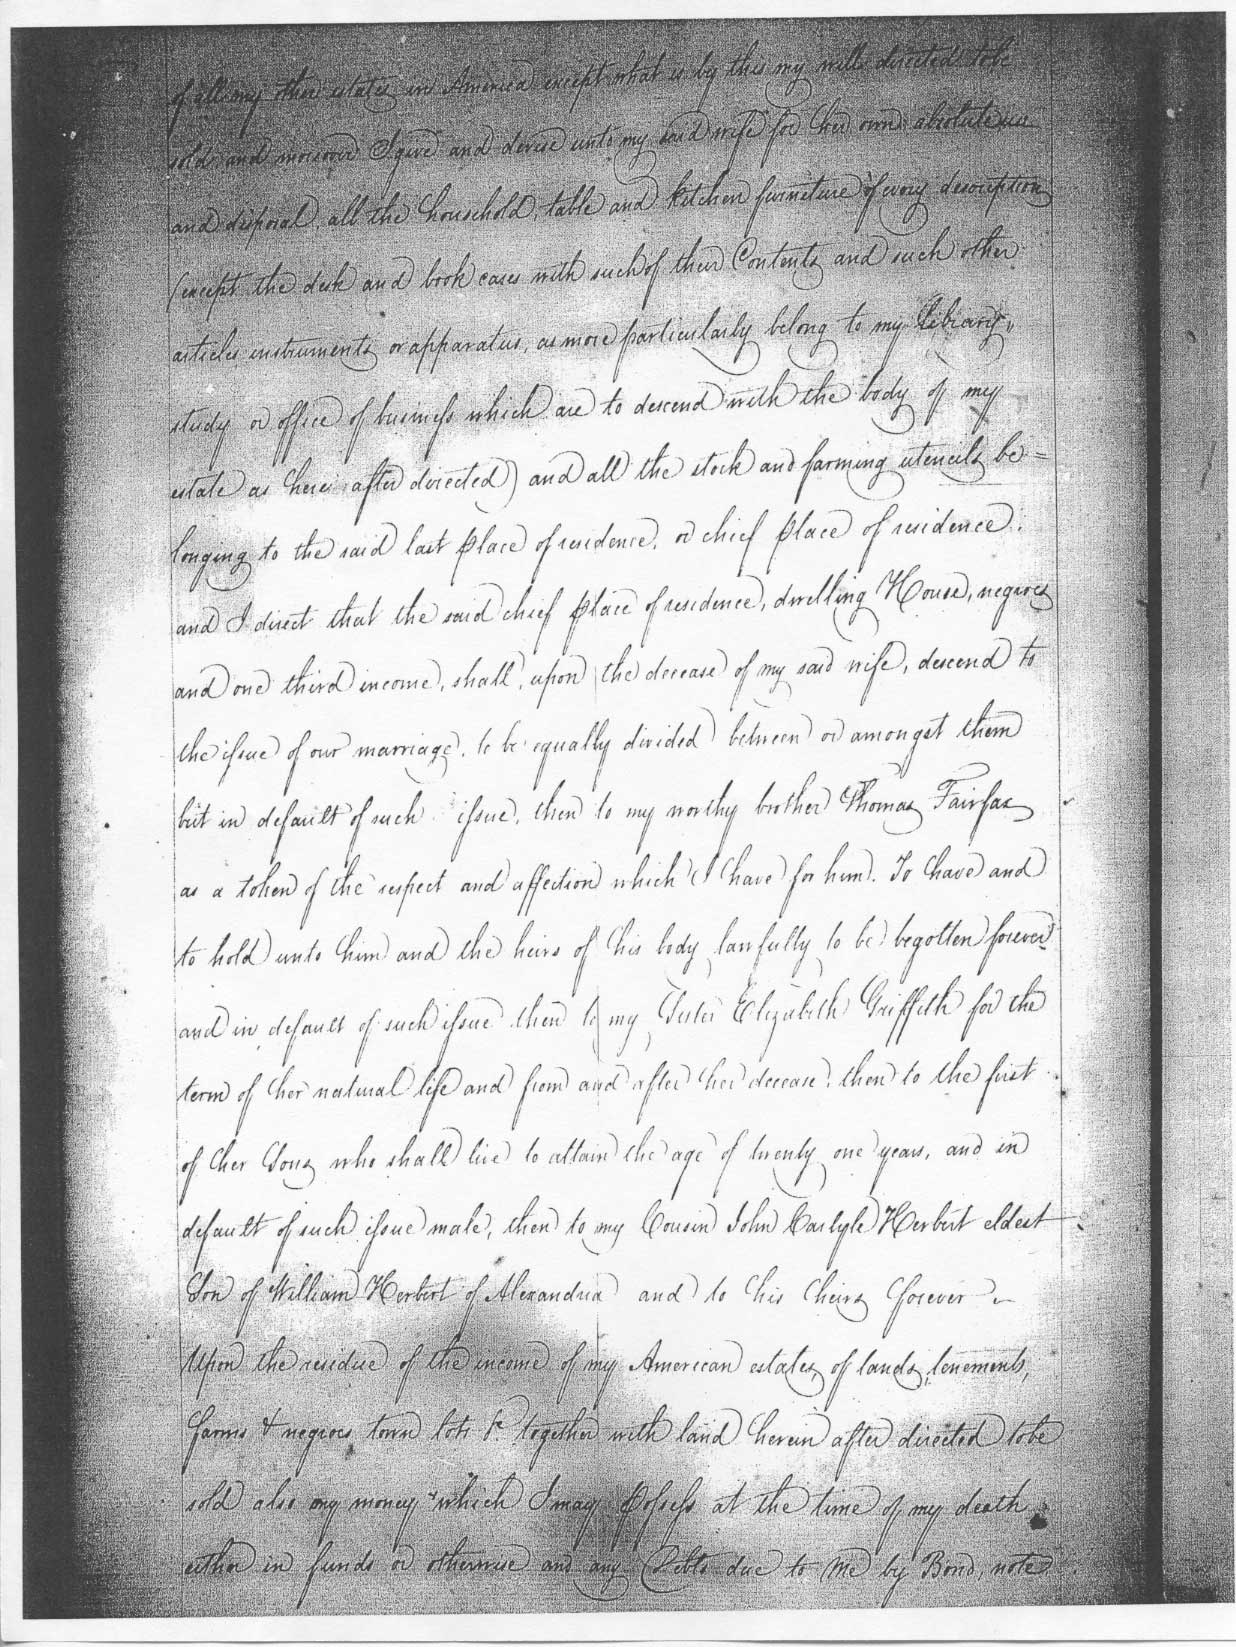 of all my other estates in America except what is by this my will directed to be
sold and moreover I give and devise unto my said wife for her own absolute use
and disposal, all the household, table and kitchen furniture of every description
(except the desk and book cases with such of their Contents and such other
articles instruments or apparatus, as more particularly belong to my Library,,
study or office of business which are to descend with the body of my
estate as here after directed) and all the stock and farming utencils be=
longing to the said last place of residence, or chief place of residence.
and I direct that the said chief place of residence, dwelling House, negroes
and one third income, shall, upon the decease of my said wife, descend to
the issue of our marriage. to be equally divided between or amongst them
but in default of such issue, then to my worthy brother Thomas Fairfax
as a token of the respect and affection which I have for him. To have and
to hold unto him and the heirs of his body lawfully to be begotten forever
and in default of such issue then to my Sister Elizabeth Griffith for the
term of her natural life and from and after her decease, then to the first
of her Sons who shall live to attain the age of twenty one years, and in
default of such issue male, then to my Cousin John Carlyle Herbert eldest
Son of William Herbert of Alexandria and to his heirs forever
Upon the residue of the income of my American estates, of lands, tenements,
farms & negroes town lots &c together with land herein after directed to be
sold also any money which I may possess at the time of my death
either in funds or otherwise and any Debts due to me by Bond, note